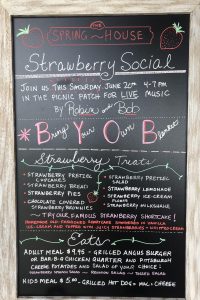 THE
SPRING - HOUSE
Strawberry Social
JOIN US THIS SATURDAY JUNE 20TH 4-7PM
IN THE PICNIC PATCH FOR LIVE MUSIC
BY Robin and Bob
Bring Your Own Blanket
Strawberry Treats
STRAWBERRY PRETZEL
CUPCAKES
STRAWBERRY BREAD
STRAWBERRY PIES
CHOCOLATE COVERED
STRAWBERRY BROWNIES
STRAWBERRY PRETZEL
SALAD
STRAWBERRY LEMONADE
STRAWBERRY
STRAWBERRY
~ TRY OUR FAMOUS STRAWBERRY SHORTCAKE!
HOMEMADE SHORTCAKE SMOTHERED IN VANILLA
ICE CREAM AND TOPPED WITH JUICY STRAWBERRIES + WHIPPED CREAM
Eats
ADULT MEAL $9.95 - GRILLED ANGUS BURGER
OR BAR-B-Q CHICKEN QUARTER AND PITTSBURGH
CHEESE POTATOES AND SALAD OF YOUR CHOICE:
KIDS MEAL $5.00 - GRILLED HOT DOG + MAC + CHEESE